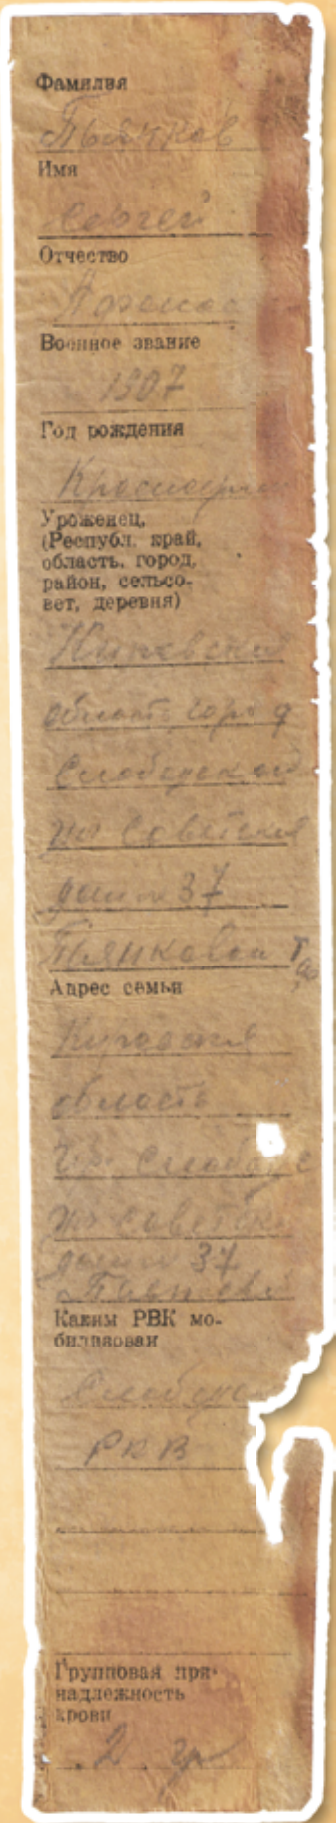 Фамилия
Пьянков
Имя
Сергей
Отчество
Военное звание
1907
Год рождения
Красноарм
Уроженец,
(Республ. край,
область, город,
район, сельсо-
вет, деревня)
область город
Слободской
ул Советская
дом № 37
Пянковой
Адрес семьи
Кировская
область
гр. Слободс
ул Советска
дом № 37
Каким РВК мо-
билизован
Слободско
РКВ
Групповая при-
надлежность
крови
2 гр